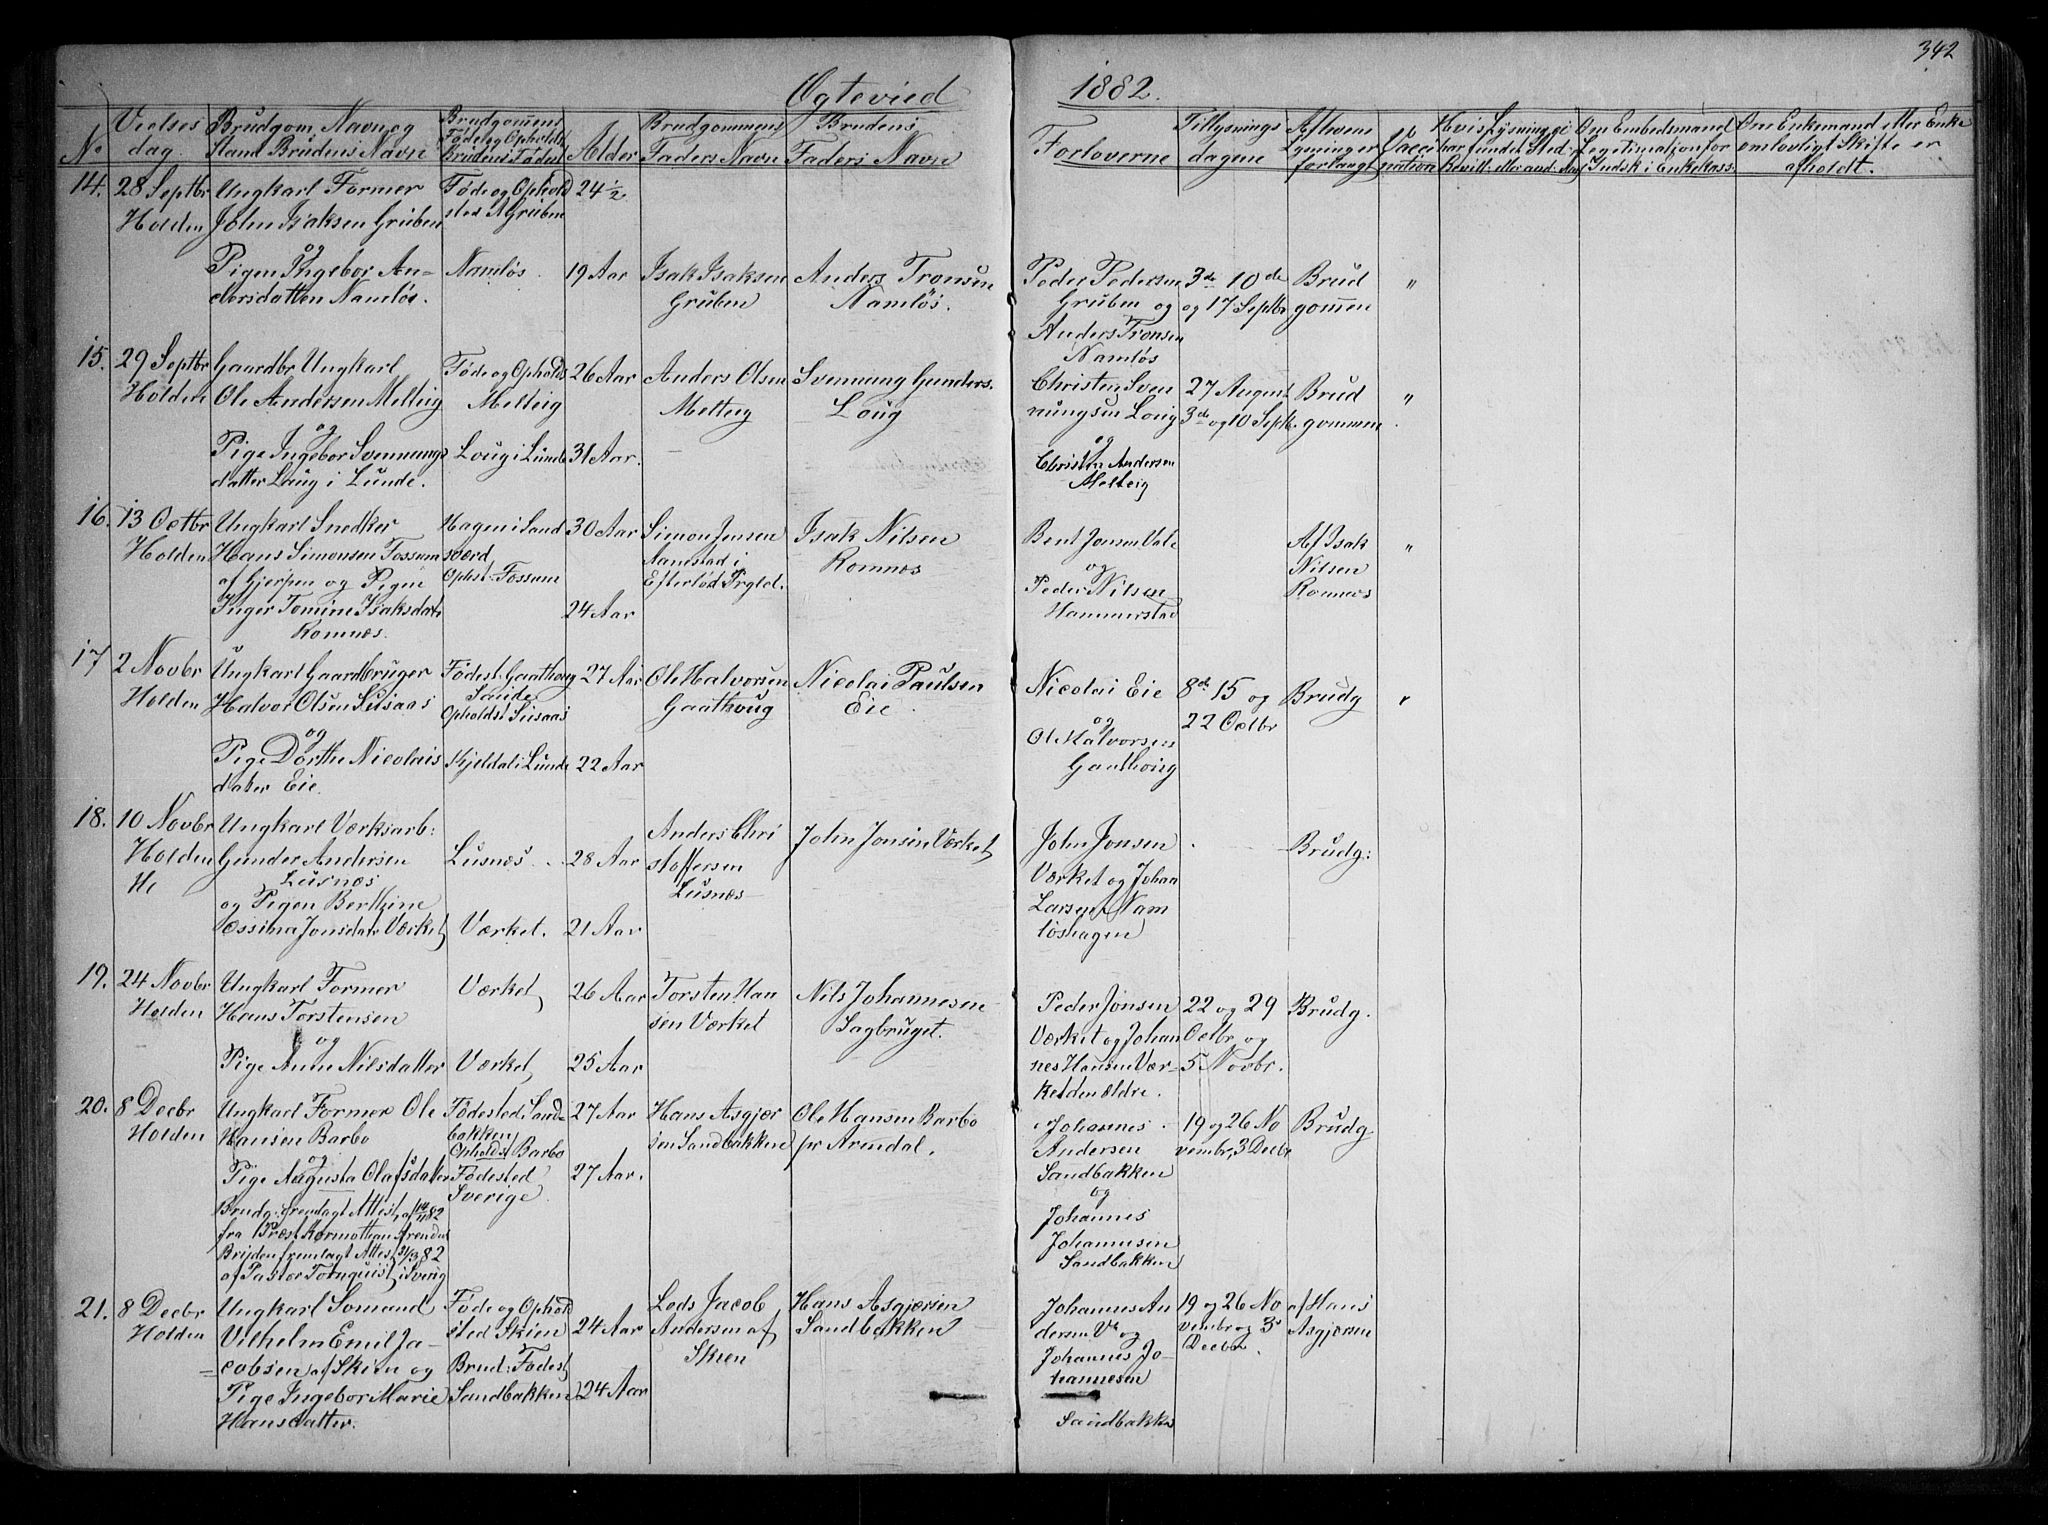 342
Ogtevied 1882.
No
Vielses dag
Brudgom. Navn og Stand Brudens Navn
Brudgommens Føde og Opholds Brudens Fødest
Alder
Brudgommens Faders Navn
Brudens Faders Navn
Forloverne
Tillysnings dagene
Af hvem Lysning er forlangt
Vacci nation
Om Enkemand eller Enke om lovligt Skifte er afholdt.
14. 28 Septbr Holden
Ungkarl Former
John Isaksen Gruben
og
Pigen Ingebor An-
dersdatten Namløs.
Føde og Ophold
sted Gruben
Namløs.
24 1/2
19 Aar
Isak Isaksen
Gruben
Anders Tronsen
Namløs.
Peder Pedersen
Gruben og
Anders Tronsen
Namløs
3de 10de
og 17 Septbr
Brud
gommen
"
15. 29 Septbr Holden
Gaardbr Ungkarl
Ole Andersen Melteig
og
Pige Ingebor Svennungs
datter Laug i Lunde.
Føde og Opholds
Melteig
Loug i Lunde
26 Aar
31 Aar.
Anders Olsen
Melteg
Svennung Gunders.
Loug
Christen Sven
nungsen Loug
og
Christen Andersen
Melteig
27 August
3de og 10 Septb.
Brud
gommen
"
16. 13 Octbr Holden
Ungkarl Snedker
Hans Simonsen Fossum
af Gjerpen og Pigen
Inger Tomine Isaksdatr
Romnæs.
Hagen i Sand
sværd
Ophst. Fossum
30 Aar
24 Aar
Simon Jensen
Aanestad i
Efterlød Prgld.
Isak Nilsen
Romnæs
Bent Jonsen Vale
og
Peder Nilsen
Hammerstad
Af Isak
Nilsen
Romnæs
"
17 2 Novbr Holden
Ungkarl Gaardbruger
Halvor Olsen Sisaas
og
Pige Dorthe Nicolais
dater Eie.
Fødest. Gaathoug
Saude
Opholdst Sisaas
Kjeldal i Lunde
27 Aar
22 Aar
Ole Halvorsen
Gaathoug
Nicolai Paulsen
Eie.
Nicolai Eie
og
Ol Halvorsen
Gaathoug
8de 15 og
22 Octbr
Brudg
"
18. 10 Novbr Holden
Ungkarl Værksarb:
Gunder Andersen
Lusnæs
og Pigen Berthine
Jonsdatr Værket
Lusnæs.
Værket.
28 Aar
21 Aar
Anders Chri
stoffersen
Lusnæs
John Jonsen Værket
John Jonsen
Værket og Johan
Larsen Nam
løshagen
Brudg:
19. 24 Novbr Holden
Ungkarl Former
Hans Torstensen
og
Pige Anne Nilsdatter
Værket
Værket
26 Aar
25 Aar
Torsten Han
sen Værket
Nils Johannesen
Sagbruget.
Peder Jonsen
Værket og Johan
nes Hansen Vær-
ket den ældre.
22 og 29
Octbr og
5 Novbr.
Brudg.
20. 8 Decbr Holden
Ungkarl Former Ole
Hansen Barbo
og
Pige Augusta Olafsdatter
Brudg: fremlagt Attest
Bruden fremlagt Attest
af Pastor Tornquist i Sverig
Fødested Sand-
bakken
Opholdst Barbo
Fødested
Sverige.
27 Aar
27 Aar.
Hans Asgjer
sen Sandbakken
Ole Hansen Barbo
pr Arendal.
Johannes
Andersen
Sandbakken
og
Johannes
Johannesen
Sandbakken
19 og 26 No
vembr, 3 Decbr
Brudg
21. 8 Decbr Holden
Ungkarl Sømand
Vilhelm Emil Ja-
cobsen af Skien og
Pige Ingebor Marie
Hansdatter.
Føde og Ophold
sted Skien
Brud: Fødest
Sandbakken
24 Aar
24 Aar
Lods Jacob
Andersen af
Skien
Hans Asgjersen
Sandbakken
Johannes An
dersen og
Johannes Jo-
hannesen
Sandbakken
19 og 26 No
vembr og 3
Decbr.
af Hans
Asgjersen